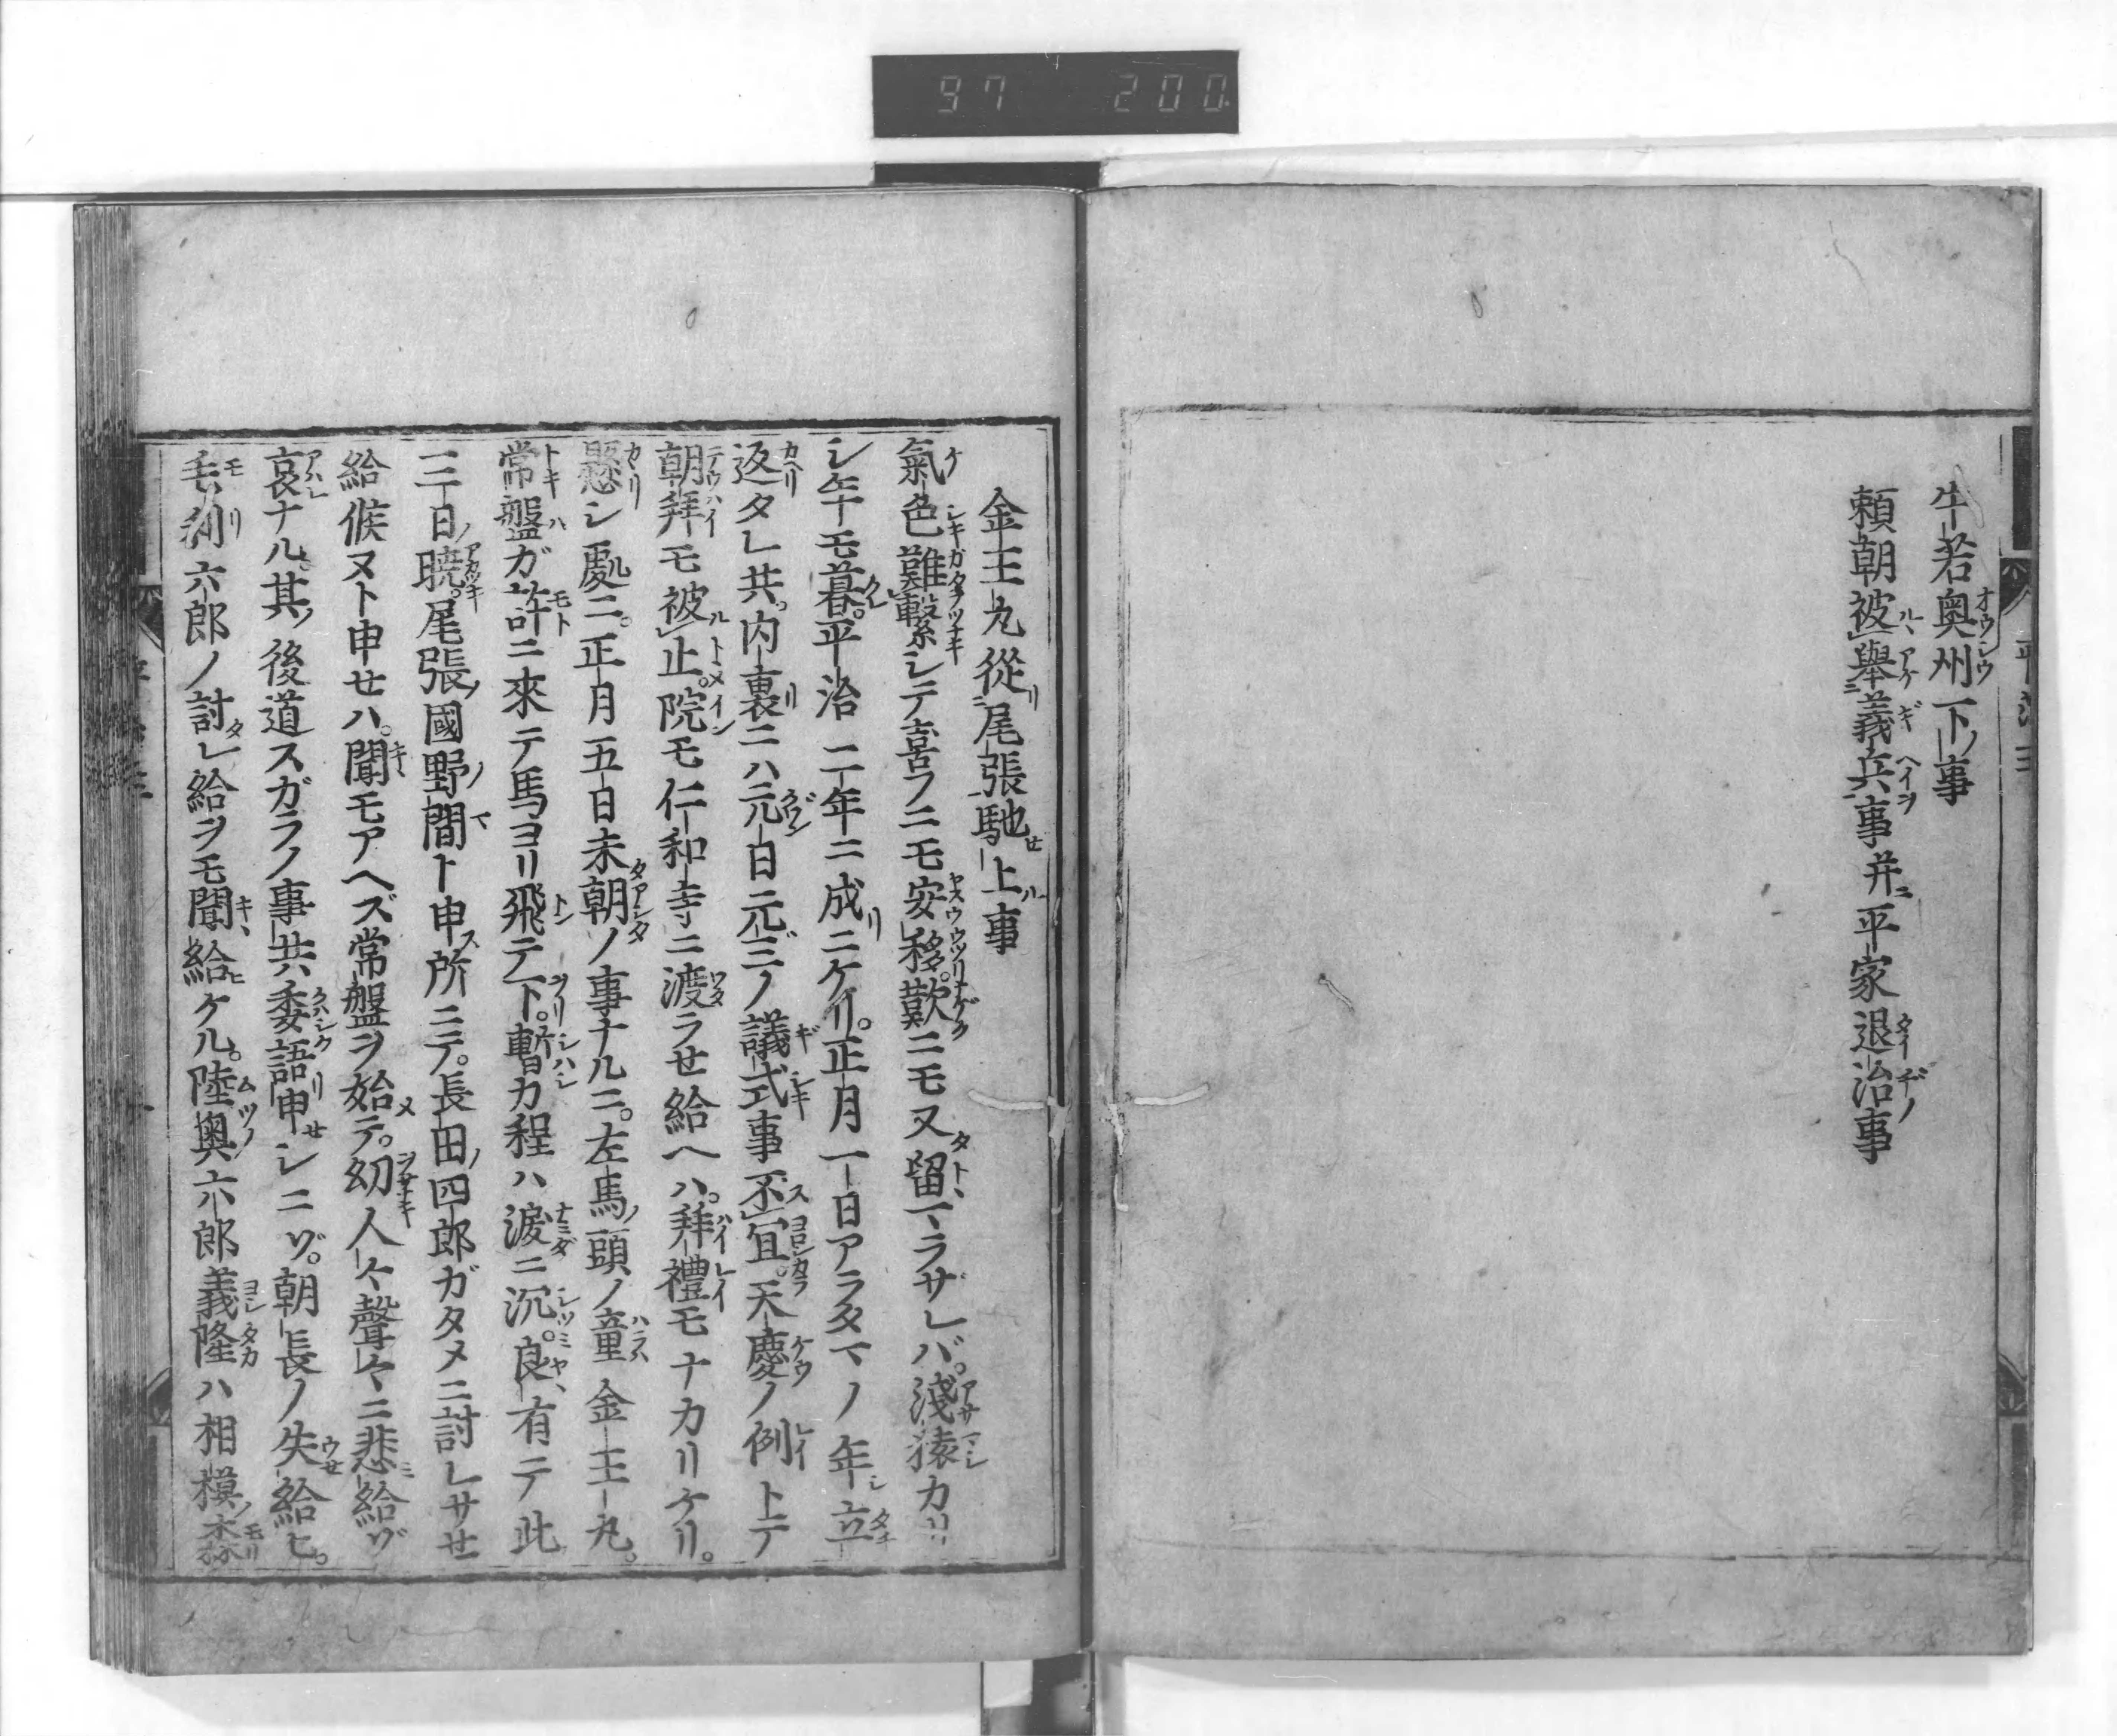 97 200
牛若奥州下ノ事
頼朝被擧義兵事并ニ平家退治ノ事
金王丸從尾張馳上事
氣色難繋シテ喜フニモ安移。歎ニモ又留マラザレバ。淺猿カリ
シ年モ暮。平治二年ニ成ニケリ。正月一日アラタマノ年立
返タレ共。内裏ニハ元日元三ノ議式事不宜。天慶ノ例トテ
朝拜モ被止。院モ仁和寺ニ渡ラせ給ヘハ。拜禮モナカリケリ。
懸シ處ニ。正月五日未朝ノ事ナルニ。左馬ノ頭ノ童金王丸。
常盤ガ許ニ來テ馬ヨリ飛テ下。暫カ程ハ涙ニ沉。良有テ此
三日ノ曉。尾張ノ國野間ト申ス所ニテ。長田ノ四郎ガタメニ討レサせ
給候ヌト申せハ。聞モアヘズ常盤ヲ始テ。幼人々聲々ニ悲給ゾ
哀ナル。其ノ後道スガラノ事共委語申せシニゾ。朝長ノ失給ヒ。
毛利六郎ノ討レ給ヲモ聞給ヒケル。陸奥六郎義隆ハ相模ノ森